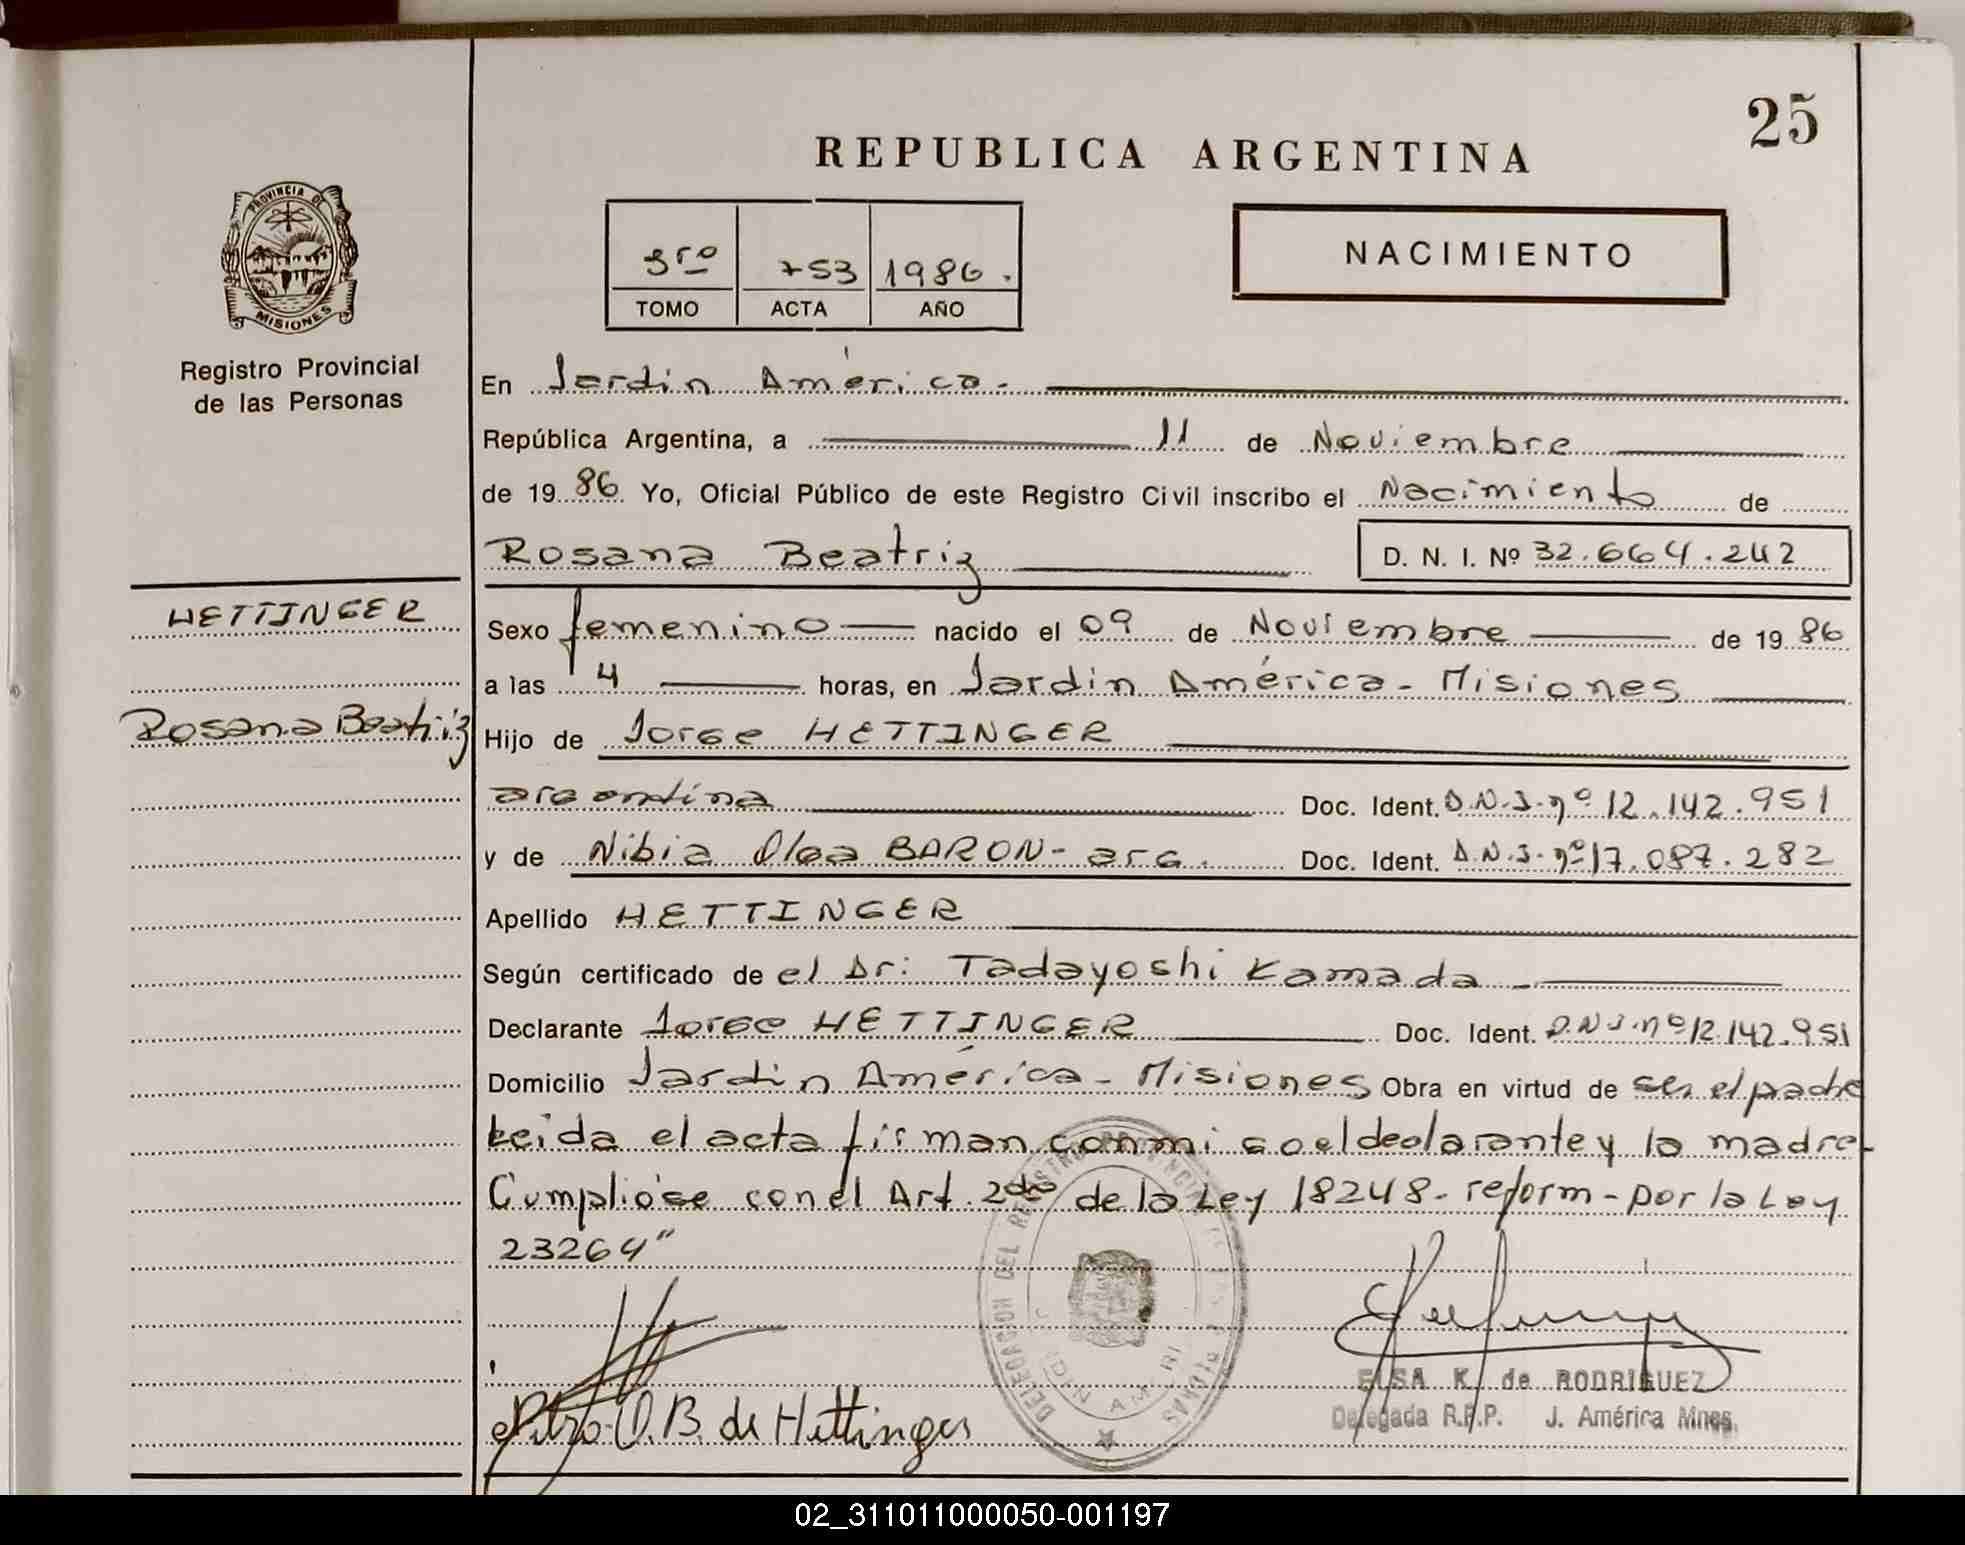 25
REPUBLICA ARGENTINA
PROVINCIA DE
MISIONES
Registro Provincial
de las Personas
3ro 753 1986.
TOMO ACTA AÑO
NACIMIENTO
En Jardin América.
República Argentina, a 11 de Noviembre
de 1986 Yo, Oficial Público de este Registro Civil inscribo el Nacimiento de
Rosana Beatriz D. N. I. Nº 32.664.242
HETTINGER
Sexo femenino nacido el 09 de Noviembre de 1986
a las 4 horas, en Jardin América - Misiones
Rosana Beatriz
Hijo de Jorge HETTINGER
argentina Doc. Ident. D.N.I. nº 12.142.951
y de Nibia Olga BARON - arg. Doc. Ident. D.N.I. nº 17.087.282
Apellido HETTINGER
Según certificado de el Dr: Tadayoshi Kamada
Declarante Jorge HETTINGER Doc. Ident. D.N.I. nº 12.142.951
Domicilio Jardin América - Misiones Obra en virtud de ser el padre
Leida el acta firman conmigo el declarante y la madre-
Cumplióse con el Art. 2do de la Ley 18248- reform - por la Ley
23264"
DELEGACION DEL REGISTRO PROVINCIAL DE LAS PERSONAS
JARDIN AMERICA
O. B. de Hettinger
ELSA K. de RODRIGUEZ
Delegada R.P.P. J. América Mnes.
02_311011000050-001197